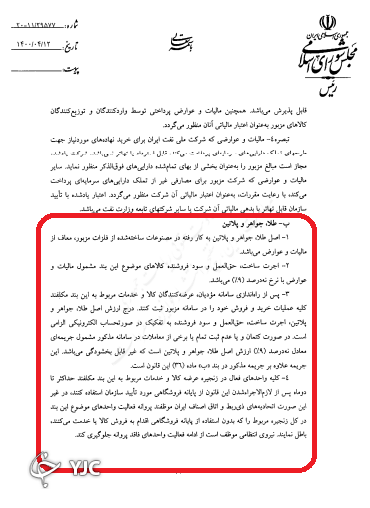 شماره: ۲۰۰۱۱/۲۹۸۷۷
تاریخ: ۱۴۰۰/۰۴/۱۲
پیوست:
باسمه تعالی
جمهوری اسلامی ایران
مجلس شورای اسلامی
رئیس
قابل پذیرش می‌باشد. همچنین مالیات و عوارض پرداختی توسط واردکنندگان و تولیدکنندگان
کالاهای مزبور به‌عنوان اعتبار مالیاتی آنان منظور می‌گردد.
تبصره۶- مالیات و عوارضی که شرکت ملی نفت ایران برای خرید نهاده‌های موردنیاز جهت
طرحهای تملک دارایی‌های سرمایه‌ای پرداخت می‌کند، قابل تهاتر نمی‌باشد. شرکت یادشده،
مجاز است مبالغ مزبور را به‌عنوان بخشی از بهای تمام‌شده دارایی‌های فوق‌الذکر منظور نماید. سایر
مالیات و عوارضی که شرکت مزبور برای مصارفی غیر از تملک دارایی‌های سرمایه‌ای پرداخت
می‌کند، با رعایت مقررات، به‌عنوان اعتبار مالیاتی آن شرکت منظور می‌گردد. اعتبار یادشده با تأیید
سازمان قابل تهاتر با بدهی مالیاتی آن شرکت یا سایر شرکتهای تابعه وزارت نفت می‌باشد.
ب- طلا، جواهر و پلاتین
۱- اصل طلا، جواهر و پلاتین به کار رفته در مصنوعات ساخته‌شده از فلزات مزبور، معاف از
مالیات و عوارض می‌باشد.
۲- اجرت ساخت، حق‌العمل و سود فروشنده کالاهای موضوع این بند مشمول مالیات و
عوارض با نرخ نه‌درصد (۹٪) می‌باشد.
۳- پس از راه‌اندازی سامانه مؤدیان، عرضه‌کنندگان کالا و خدمات مربوط به این بند مکلفند
کلیه عملیات خرید و فروش خود را در سامانه مزبور ثبت کنند. درج ارزش اصل طلا، جواهر و
پلاتین، اجرت ساخت، حق‌العمل و سود فروشنده به تفکیک در صورتحساب الکترونیکی الزامی
است. در صورت کتمان و یا عدم ثبت تمام یا برخی از معاملات در سامانه مذکور مشمول جریمه‌ای
معادل نه‌درصد (۹٪) ارزش اصل طلا، جواهر و پلاتین است که غیر قابل بخشودگی می‌باشد. این
جریمه علاوه بر جریمه مذکور در بند «ب» ماده (۳۶) این قانون است.
۴- کلیه واحدهای فعال در زنجیره عرضه کالا و خدمات مربوط به این بند مکلفند حداکثر تا
دوماه پس از لازم‌الاجراءشدن این قانون از پایانه فروشگاهی مورد تأیید سازمان استفاده کنند، در غیر
این صورت اتحادیه‌های ذی‌ربط و اتاق اصناف ایران موظفند پروانه فعالیت واحدهای موضوع این بند
در کل زنجیره مربوط را که بدون استفاده از پایانه فروشگاهی اقدام به فروش کالا یا خدمت می‌کنند،
باطل نمایند. نیروی انتظامی موظف است از ادامه فعالیت واحدهای فاقد پروانه جلوگیری کند.
YJC